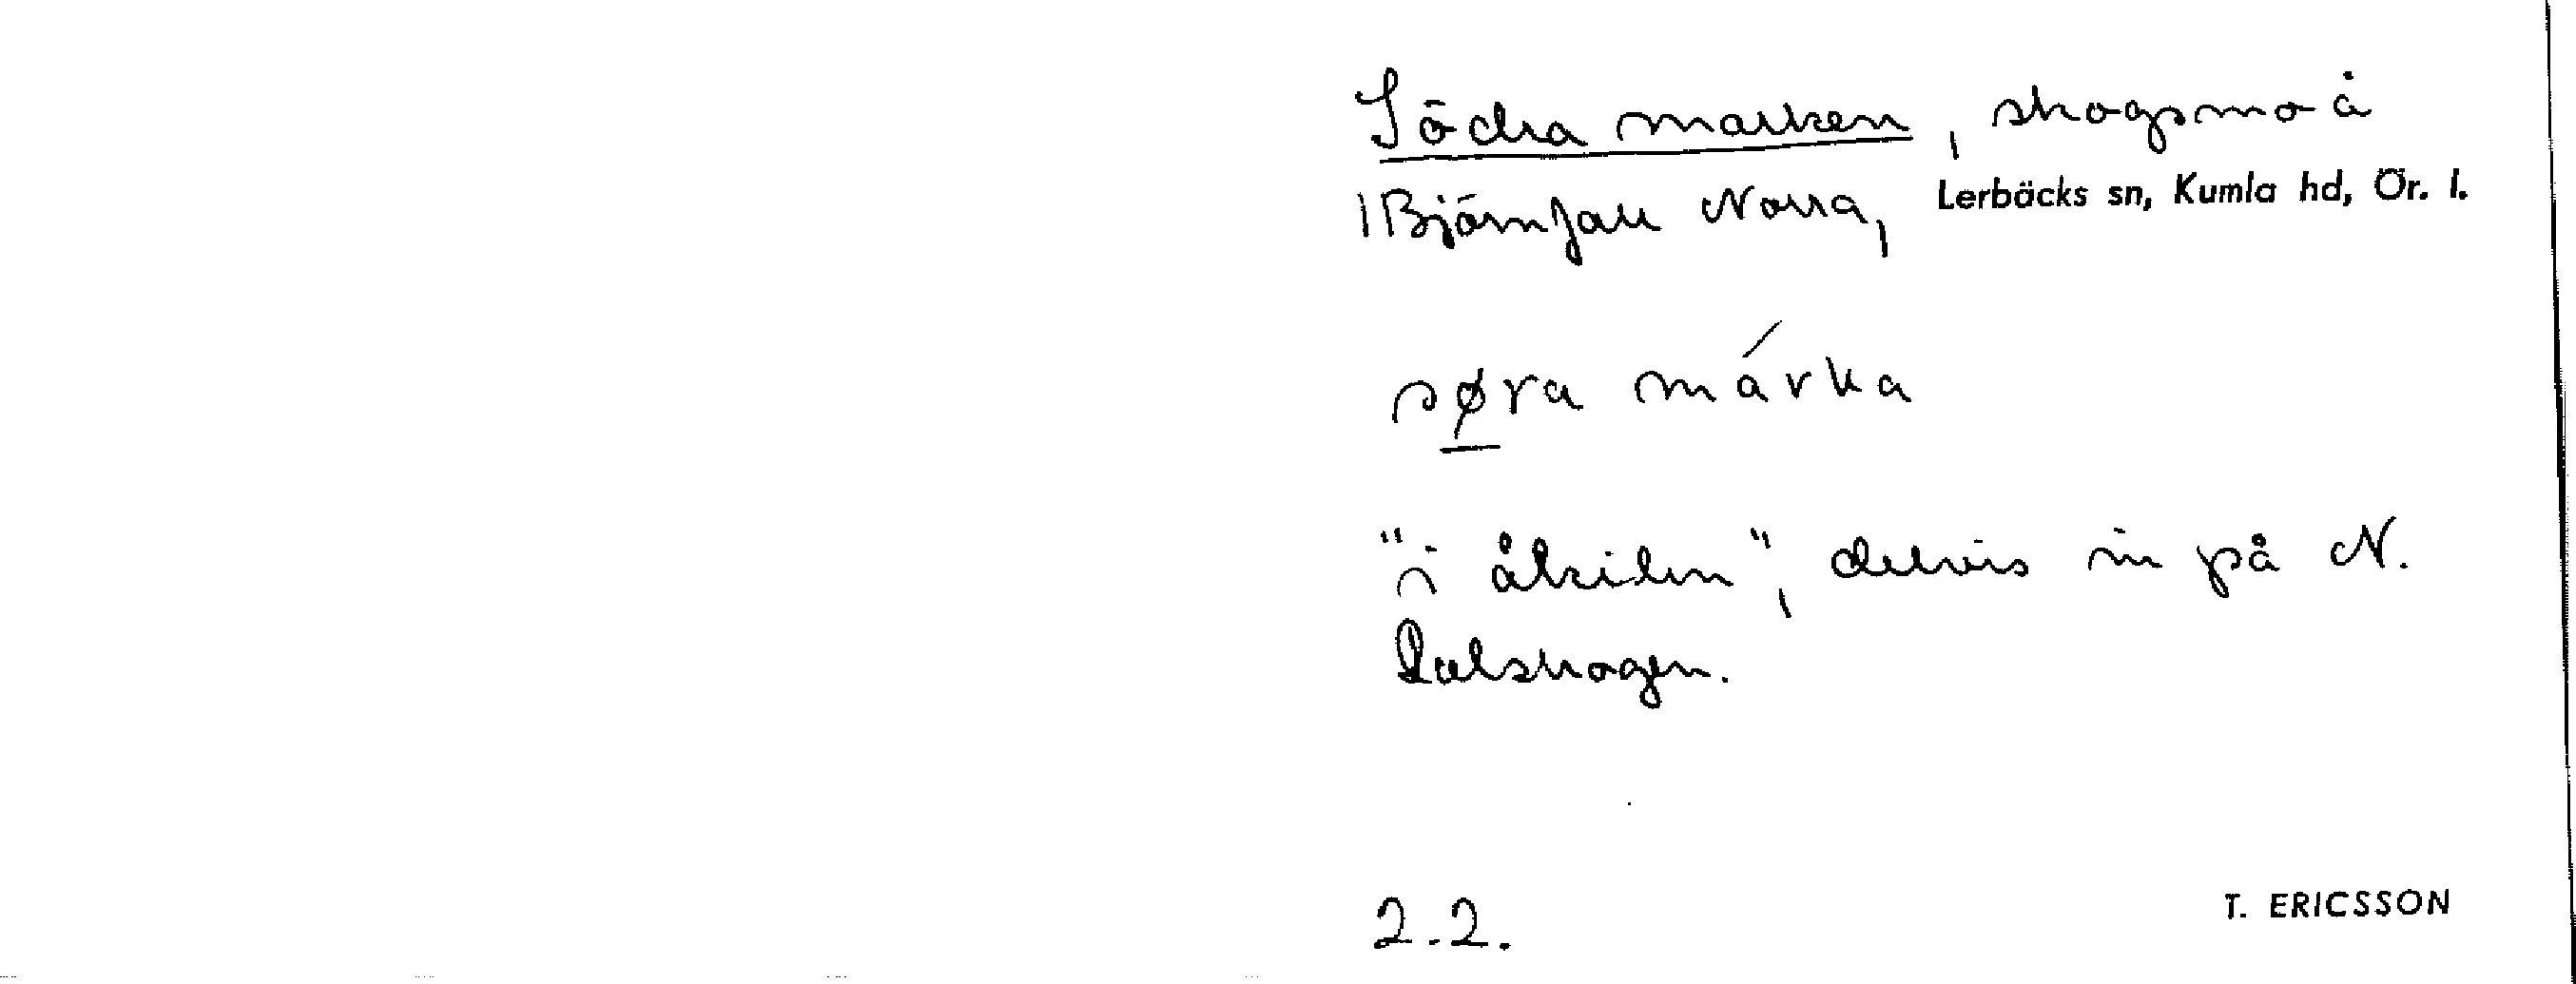 Södra marken, skogsmo å
Björnfall Norra, Lerbäcks sn, Kumla hd, Ör. l.
søra márka
"i åkilen", delvis in på N.
Dalskogen.
2.2. T. ERICSSON